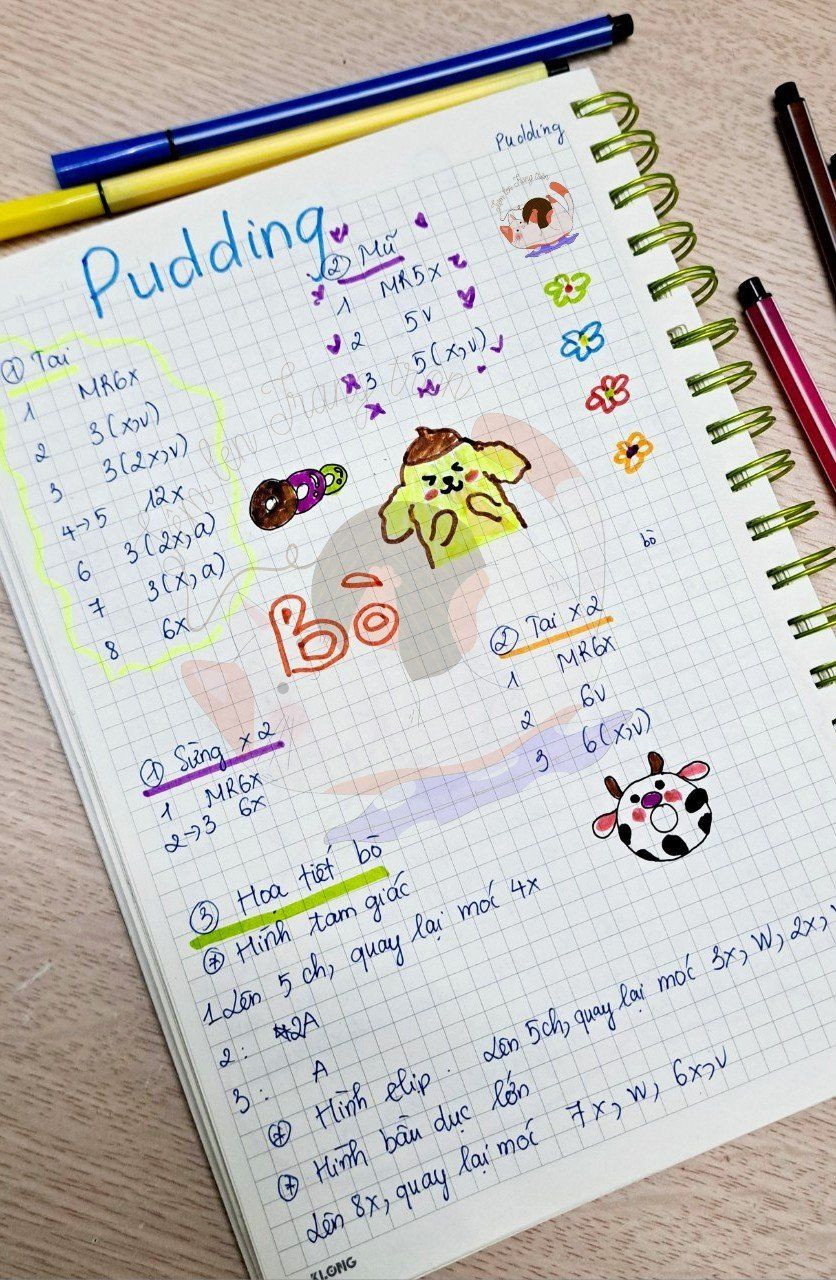 Pudding
Pudding
① Tai
1 MR6x
2 3(x,v)
3 3(2x,v)
4→5 12x
6 3(2x,a)
7 3(x,a)
8 6x
② Mũ
1 MR5x
2 5v
3 5(x,v)
bò
Bò
① Sừng x 2
1 MR6x
2→3 6x
② Tai x 2
1 MR6x
2 6v
3 6(x,v)
③ Hoạ tiết bò
Hình tam giác
1 Lên 5 ch, quay lại móc 4x
2: 2A
3: A
Hình elip. Lên 5ch, quay lại móc 3x, W, 2x, v
Hình bầu dục lớn
Lên 8x, quay lại móc 7x, W, 6x,v
KLONG